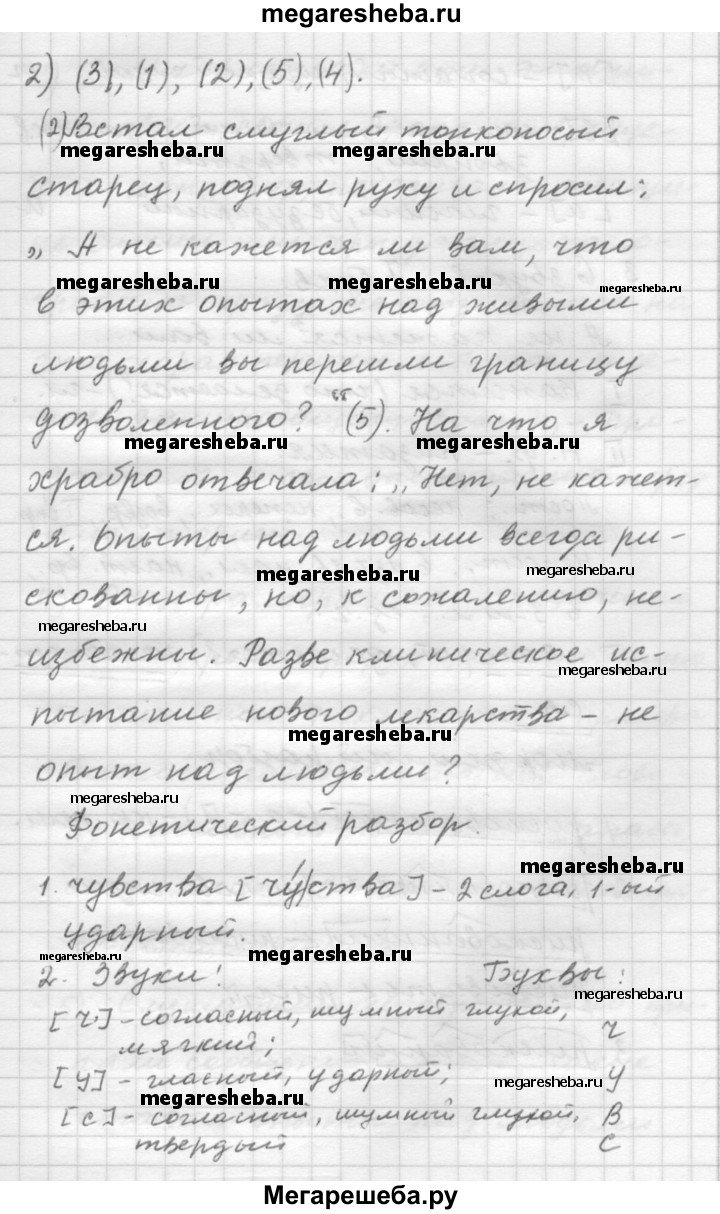 megaresheba.ru
2) (3), (1), (2), (5), (4).
(2) Встал смуглый тонконосый
megaresheba.ru megaresheba.ru
старец, поднял руку и спросил:
„А не кажется ли вам, что
megaresheba.ru megaresheba.ru megaresheba.ru
в этих опытах над живыми
людьми вы перешли границу
дозволенного?“ (5). На что я
megaresheba.ru megaresheba.ru
храбро отвечала: „Нет, не кажет-
ся. Опыты над людьми всегда ри-
megaresheba.ru megaresheba.ru
скованны, но, к сожалению, не-
megaresheba.ru
избежны. Разве клиническое ис-
megaresheba.ru
пытание нового лекарства – не
megaresheba.ru
опыт над людьми?
megaresheba.ru
Фонетический разбор.
megaresheba.ru
1. чувства [чу́|ства] – 2 слога, 1-ый
ударный.
megaresheba.ru megaresheba.ru
2. Звуки: Буквы:
megaresheba.ru
[ч'] – согласный, шумный глухой, ч
мягкий;
[у] – гласный, ударный; у
megaresheba.ru megaresheba.ru
[с] – согласный, шумный глухой, в
твердый с
Мегарешеба.ру